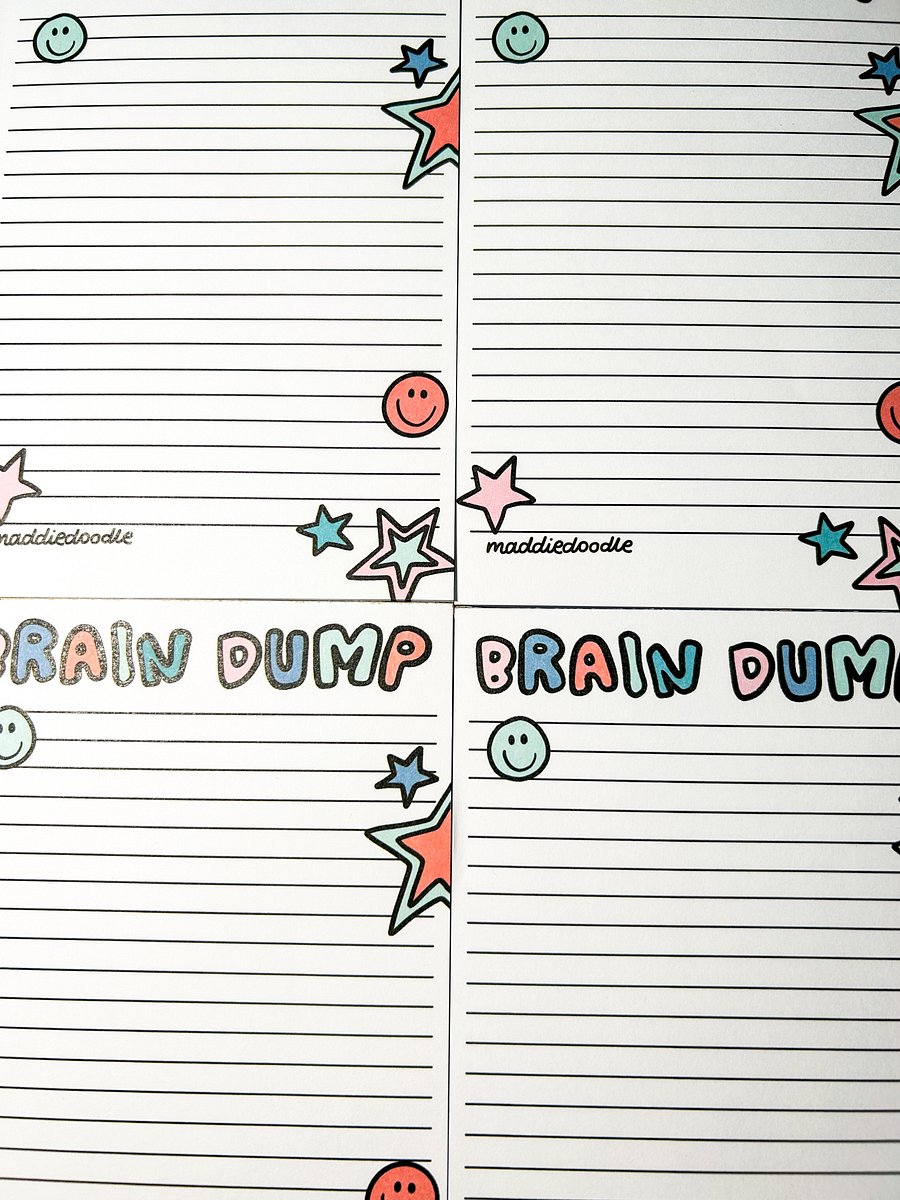 maddiedoodle
maddiedoodle
BRAIN DUMP
BRAIN DUM